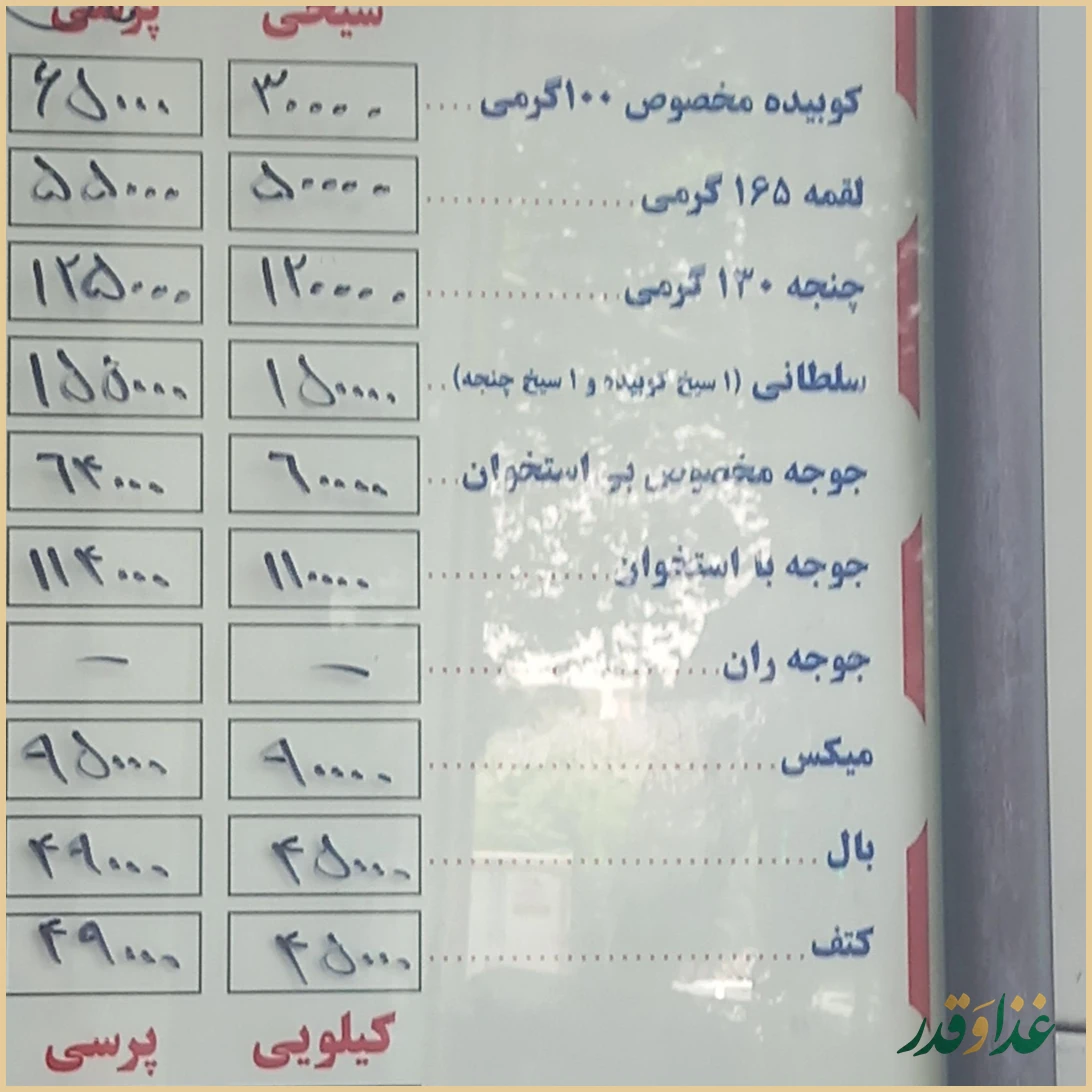 سیخی پرسی
کوبیده مخصوص ۱۰۰گرمی .... ۳۰۰۰۰ ۶۵۰۰۰
لقمه ۱۶۵ گرمی ............... ۵۰۰۰۰ ۵۵۰۰۰
چنجه ۱۳۰ گرمی ............... ۱۲۰۰۰۰ ۱۲۵۰۰۰
سلطانی (۱ سیخ کوبیده و ۱ سیخ چنجه) .. ۱۵۰۰۰۰ ۱۵۵۰۰۰
جوجه مخصوص بی استخوان ... ۶۰۰۰۰ ۶۴۰۰۰
جوجه با استخوان ............... ۱۱۰۰۰۰ ۱۱۴۰۰۰
جوجه ران ..................... - -
میکس ......................... ۹۰۰۰۰ ۹۵۰۰۰
بال ............................ ۴۵۰۰۰ ۴۹۰۰۰
کتف ........................... ۴۵۰۰۰ ۴۹۰۰۰
کیلویی پرسی
غذا و قدر